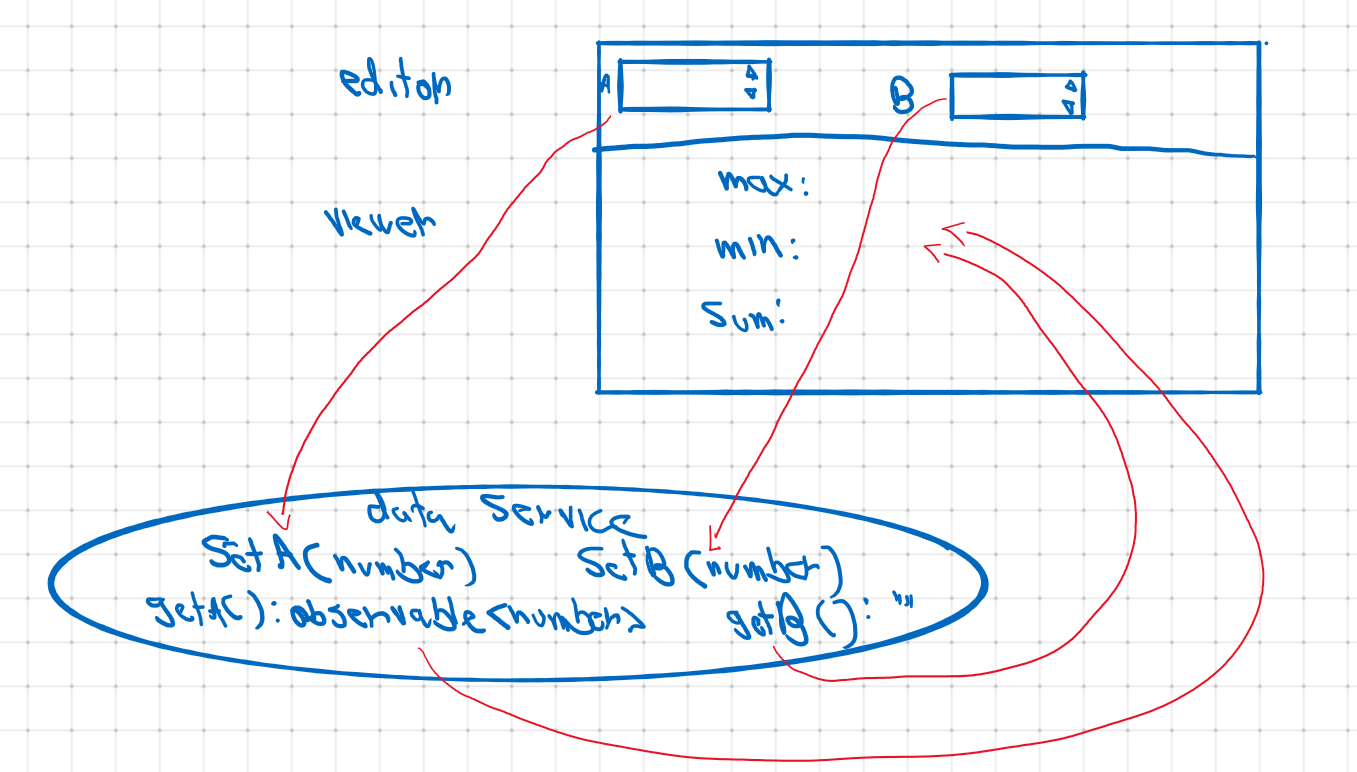 editor
A
B
viewer
max:
min:
sum:
data service
SetA(number) SetB(number)
getA():observable<number> getB(): "„"